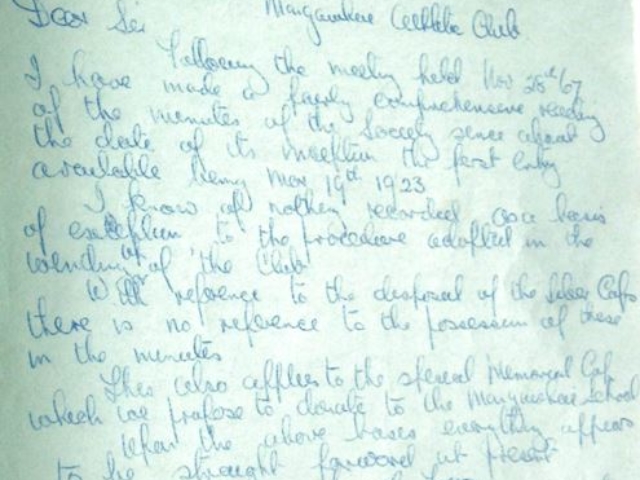 Dear Sir
Club
Following the meeting held Nov 28th/67
I have made a fairly comprehensive reading
of the minutes of the Society since about
the date of its inception the first entry
available being Mar 19th 1923
I know of nothing recorded as a basis
of exception to the procedure adopted in the
winding up of the Club
With reference to the disposal of the Silver Cups
there is no reference to the possession of these
in the minutes
This also applies to the special Memorial Cup
which we propose to donate to the School
Upon the above basis everything appears
to be straight forward at present